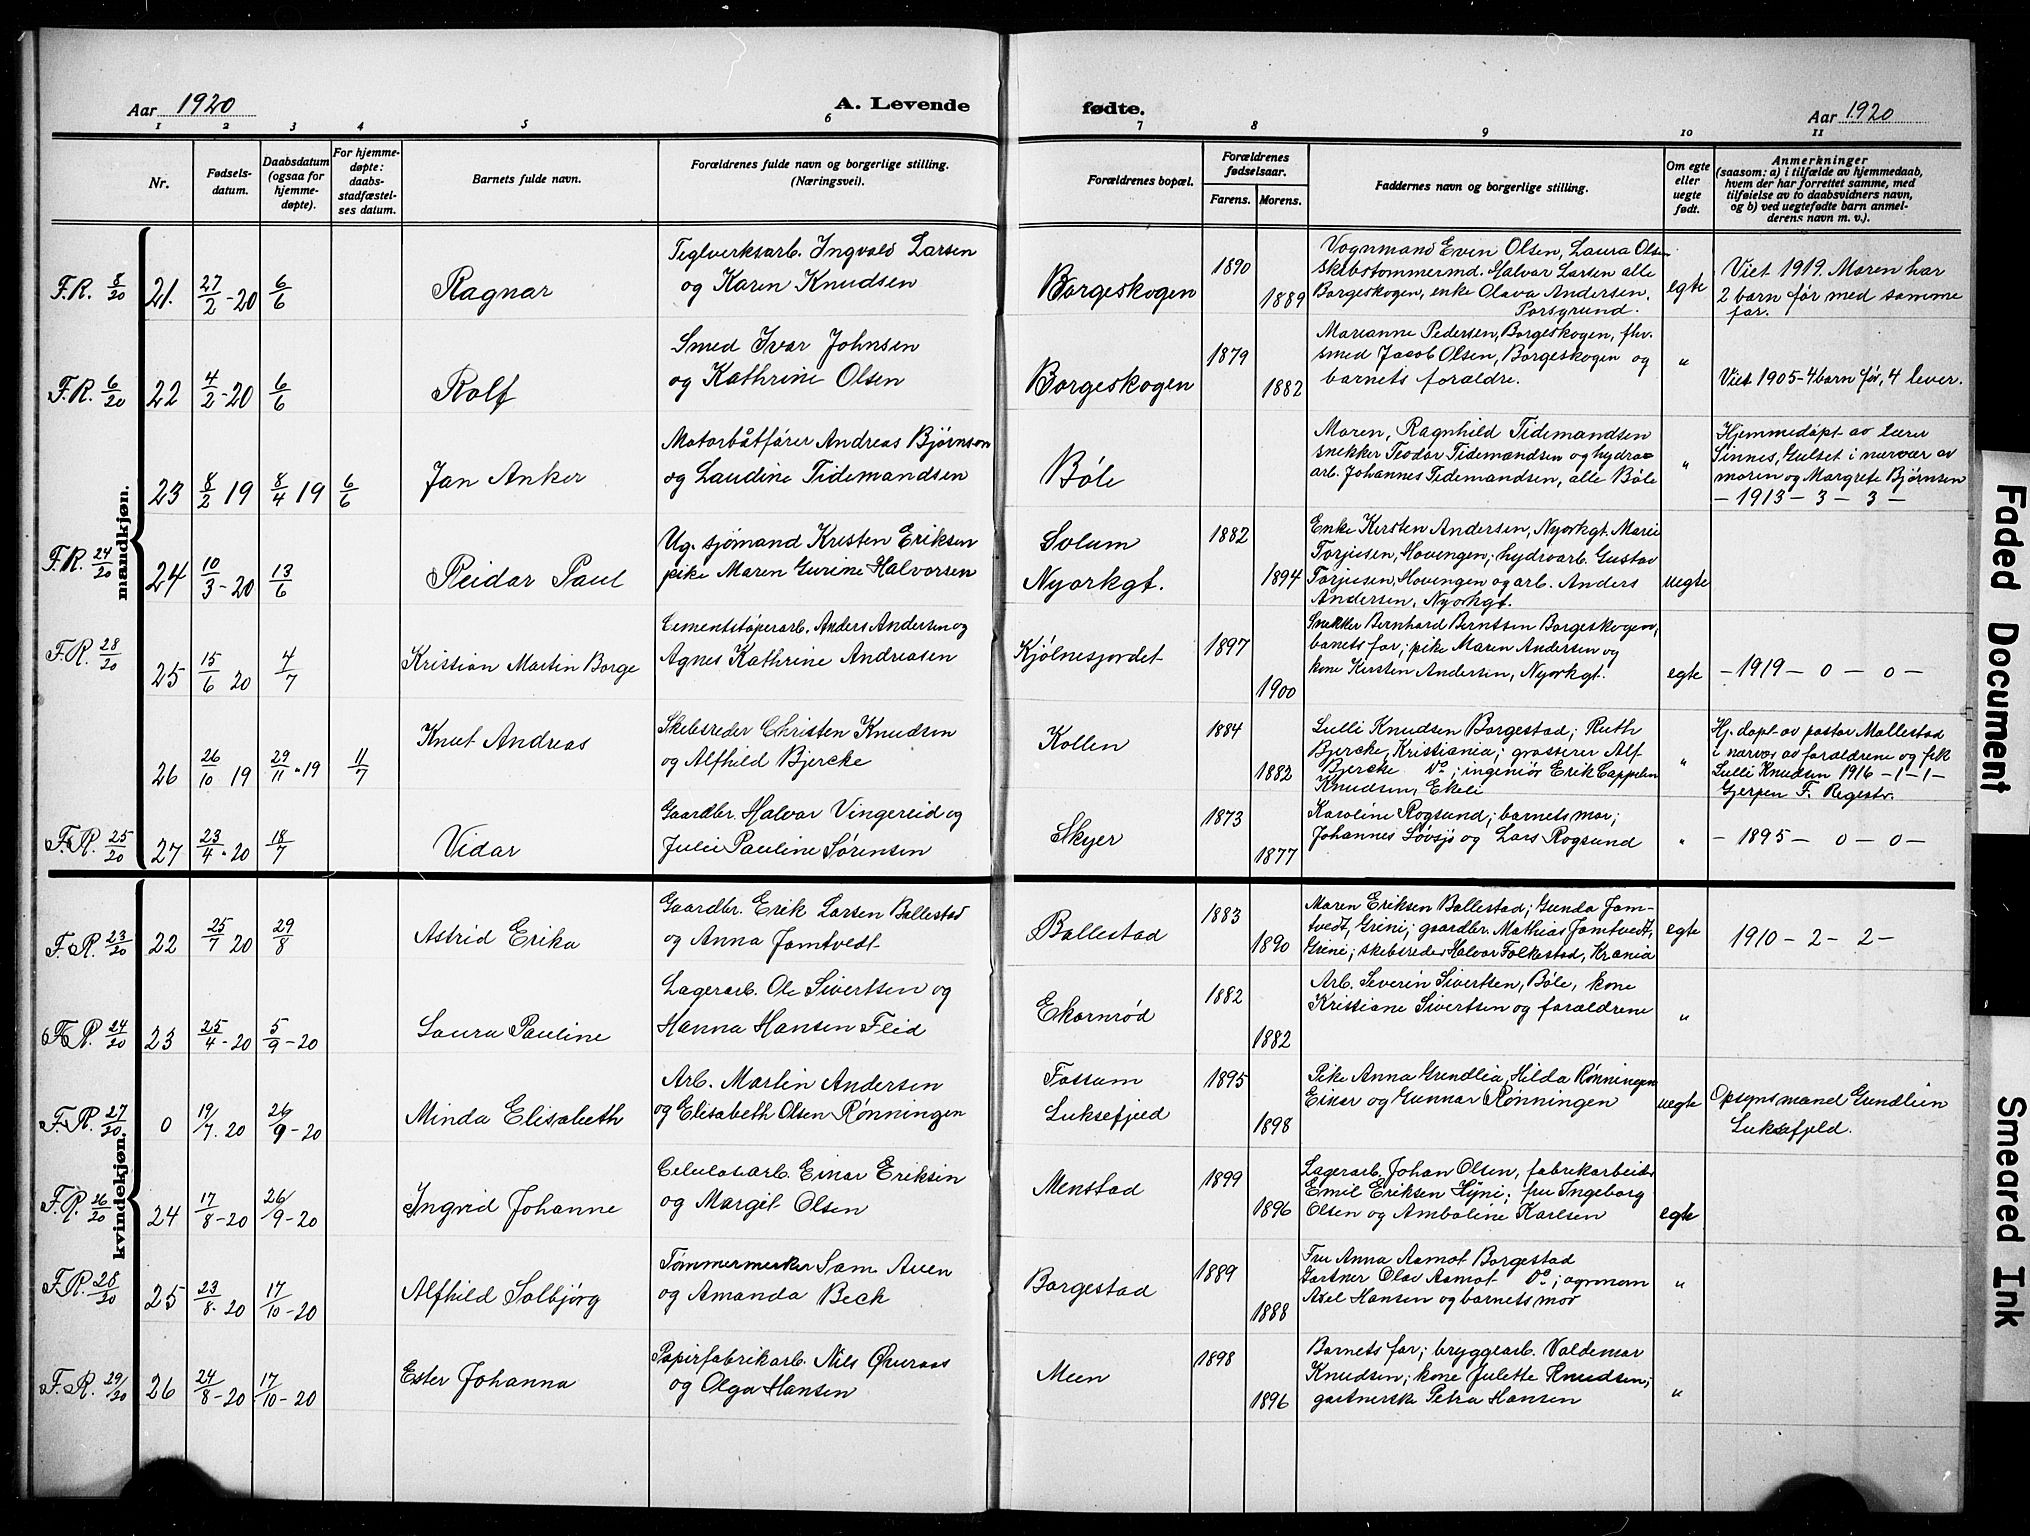 Aar 1920
A. Levende
fødte.
Aar 1920
1 2 3 4 5 6 7 8 9 10 11
Nr.
Fødsels-
datum.
Daabsdatum
(ogsaa for
hjemme-
døpte).
For hjemme-
døpte:
daabs-
stadfæstel-
ses datum.
Barnets fulde navn.
Forældrenes fulde navn og borgerlige stilling.
(Næringsvei).
Forældrenes bopæl.
Forældrenes
fødselsaar.
Farens. Morens.
Faddernes navn og borgerlige stilling.
Om egte
eller
uegte
født.
Anmerkninger
(saasom: a) i tilfælde av hjemmedaab,
hvem der har forrettet samme, med
tilføielse av to daabsvidners navn,
og b) ved uegtefødte barn anmel-
derens navn m. v.).
mandkjøn.
F.R. 8/20 21. 27/2-20 6/6
Ragnar
Teglverksarb. Ingvald Larsen
og Karen Knudsen
Borgeskogen
1890
1889
Vognmand Even Olsen, Laura Olsen
skibstømmermd. Halvor Larsen alle
Borgeskogen, enke Olava Andersen,
Porsgrund.
egte
Viet 1919. Moren har
2 barn før med samme
far.
F.R. 6/20 22 4/2-20 6/6
Rolf
Smed Ivar Johnsen
og Kathrine Olsen
Borgeskogen
1879
1882
Marianne Pedersen, Borgeskogen, fhv.
smed Jacob Olsen, Borgeskogen og
barnets forældre.
"
Viet 1905-4 barn før, 4 lever.
23 8/2 19 8/4 19 6/6
Jan Anker
Motorbåtfører Andreas Bjørnson
og Laudine Tidemandsen
Bøle
Moren, Ragnhild Tidemandsen
snekker Teodor Tidemandsen og hydro=
arb. Johannes Tidemandsen, alle Bøle
"
Hjemmedøpt av lærer
Sinnes, Gulset i nærvær av
moren og Margrete Bjørnsen
- 1913 - 3 - 3 -
F.R. 24/20 24 10/3-20 13/6
Reidar Paul
Ug. sjømand Kristen Eriksen
pike Maren Gurine Halvorsen
Solum
Nyorkgt.
1882
1894
Enke Kirsten Andersen, Nyorkgt. Marie
Torjusen, Hovengen; hydroarb. Gustav
Torjusen, Hovengen og arb. Anders
Andersen, Nyorkgt.
uegte
F.R. 28/20 25 15/6 20 4/7
Kristian Martin Borge
Cementstøperarb. Anders Andersen og
Agnes Kathrine Andreasen
Kjølnesjordet
1897
1900
Snekker Bernhard Berntsen Borgeskogen,
barnets far; pike Maren Andersen og
kone Kirsten Andersen, Nyorkgt.
egte
- 1919 - 0 - 0 -
26 26/10 19 29/11-19 11/7
Knut Andreas
Skibsreder Christen Knudsen
og Alfhild Bjercke
Kollen
1884
1882
Lulli Knudsen Borgestad; Ruth
Bjercke, Kristiania; grosserer Alf
Bjercke do; ingeniør Erik Cappelen
Knudsen, Ekeli
"
Hj. døpt av pastor Møllestad
i nærvær av forældrene og frk
Lulli Knudsen 1916 -1-1-
Gjerpen F. Regestr.
F.R. 25/20 27 23/4-20 18/7
Vidar
Gaardbr. Halvor Vingereid og
Julie Pauline Sørensen
Skyer
1873
1877
Karoline Rogsund; barnets mor;
Johannes Løvsjø og Lars Rogsund
"
- 1895 - 0 - 0 -
kvindekjøn.
F.R. 23/20 22 25/7 20 29/8
Astrid Erika
Gaardbr. Erik Larsen Ballestad
og Anna Jamtvedt
Ballestad
1883
1890
Maren Eriksen Ballestad; Gunda Jam-
tvedt, Grini; gaardbr. Mathias Jamtvedt,
Grini; skibsreder Halvor Folkestad, Krania
egte
1910 - 2 - 2 -
F.R. 24/20 23 25/4-20 5/9-20
Laura Pauline
Lagerarb. Ole Sivertsen og
Hanna Hansen Flid
Ekornrød
1882
1882
Arb. Severin Sivertsen, Bøle, kone
Kristiane Sivertsen og forældrene
"
F.R. 27/20 0 19/7.20 26/9-20
Minda Elisabeth
Arb. Martin Andersen
og Elisabeth Olsen Rønningen
Fossum
Luksefjeld
1895
1898
Pike Anna Grendlia, Hilda Rønningen
Einar og Gunnar Rønningen
uegte
Opsynsmand Gundlien
Luksefjeld.
F.R. 26/20 24 17/8-20 26/9-20
Ingrid Johanne
Celulosearb. Einar Eriksen
og Margit Olsen
Menstad
1899
1896
Lagerarb. Johan Olsen, fabrikarbeider
Emil Eriksen Hyni; fru Ingeborg
Olsen og Amboline Karlsen
egte
F.R. 28/20 25 23/8-20 17/10-20
Alfhild Solbjørg
Tømmermerker Sam Auen
og Amanda Beck
Borgestad
1889
1888
Fru Anna Aamot Borgestad
Gartner Olav Aamot do; agrmam
Axel Hansen og barnets mor
"
F.R. 29/20 26 24/8-20 17/10-20
Ester Johanna
Papirfabrikarb. Nils Øveraas
og Olga Hansen
Meen
1898
1896
Barnets far; bryggearb. Valdemar
Knudsen; kone Julette Knudsen;
gartnerske Petra Hansen
"
Faded Document
Smeared Ink